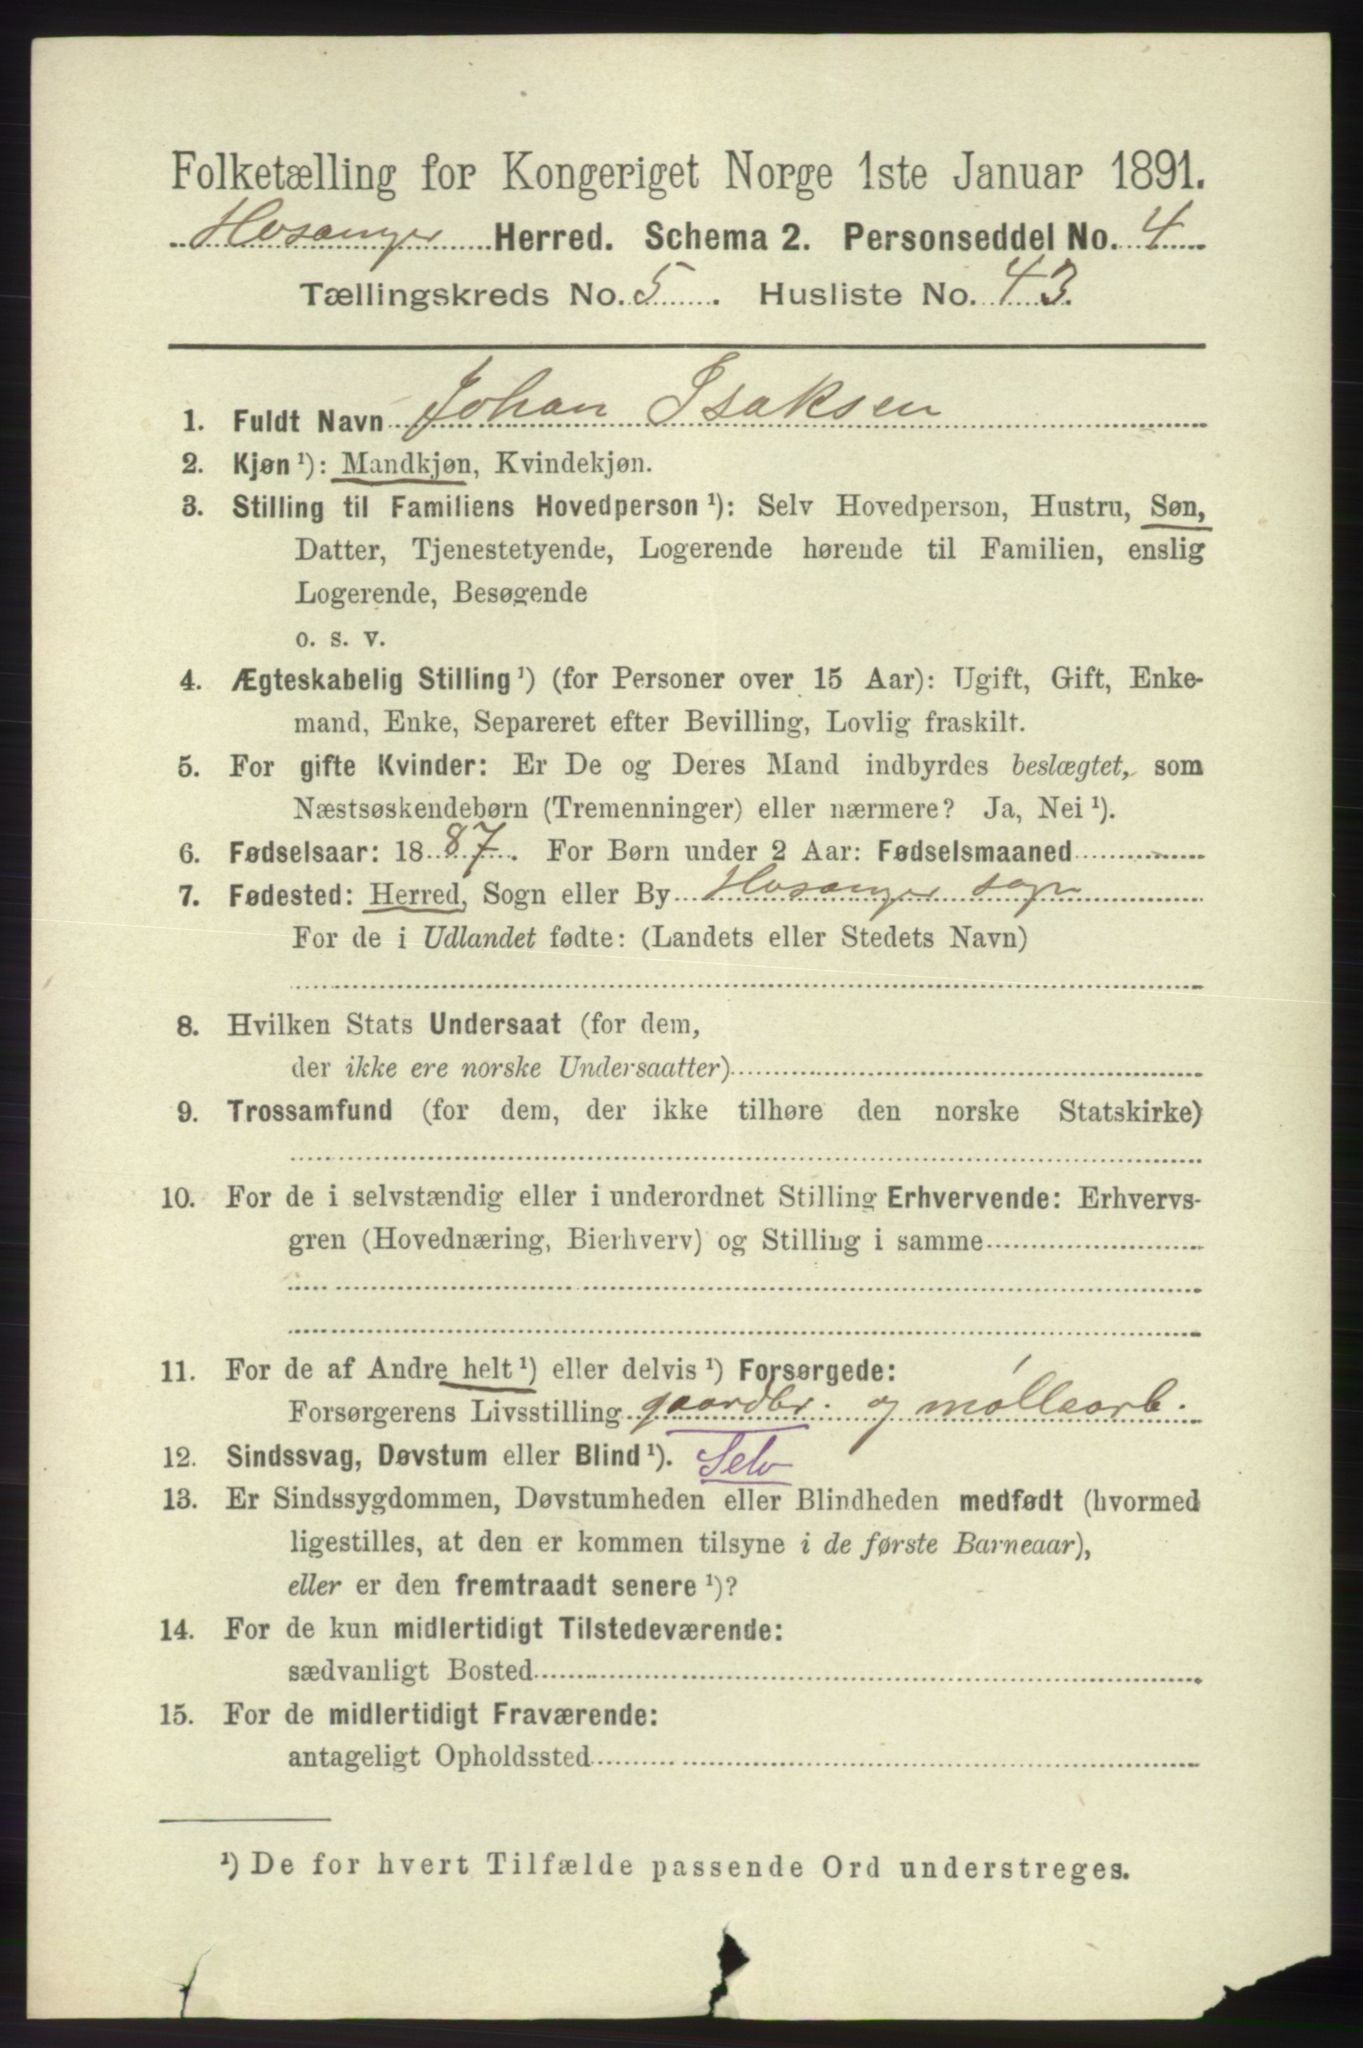 Folketælling for Kongeriget Norge 1ste Januar 1891.
Hosanger Herred. Schema 2. Personseddel No. 4
Tællingskreds No. 5. Husliste No. 43.
1. Fuldt Navn Johan Isaksen
2. Kjøn ¹): Mandkjøn, Kvindekjøn.
3. Stilling til Familiens Hovedperson ¹): Selv Hovedperson, Hustru, Søn,
Datter, Tjenestetyende, Logerende hørende til Familien, enslig
Logerende, Besøgende
o. s. v.
4. Ægteskabelig Stilling ¹) (for Personer over 15 Aar): Ugift, Gift, Enke-
mand, Enke, Separeret efter Bevilling, Lovlig fraskilt.
5. For gifte Kvinder: Er De og Deres Mand indbyrdes beslægtet, som
Næstsøskendebørn (Tremenninger) eller nærmere? Ja, Nei ¹).
6. Fødselsaar: 1887. For Børn under 2 Aar: Fødselsmaaned
7. Fødested: Herred, Sogn eller By Hosanger sogn
For de i Udlandet fødte: (Landets eller Stedets Navn)
8. Hvilken Stats Undersaat (for dem,
der ikke ere norske Undersaatter)
9. Trossamfund (for dem, der ikke tilhøre den norske Statskirke)
10. For de i selvstændig eller i underordnet Stilling Erhvervende: Erhvervs-
gren (Hovednæring, Bierhverv) og Stilling i samme
11. For de af Andre helt ¹) eller delvis ¹) Forsørgede:
Forsørgerens Livsstilling gaardbr. og møllearb.
12. Sindssvag, Døvstum eller Blind ¹). Selv
13. Er Sindssygdommen, Døvstumheden eller Blindheden medfødt (hvormed
ligestilles, at den er kommen tilsyne i de første Barneaar),
eller er den fremtraadt senere ¹)?
14. For de kun midlertidigt Tilstedeværende:
sædvanligt Bosted
15. For de midlertidigt Fraværende:
antageligt Opholdssted
¹) De for hvert Tilfælde passende Ord understreges.